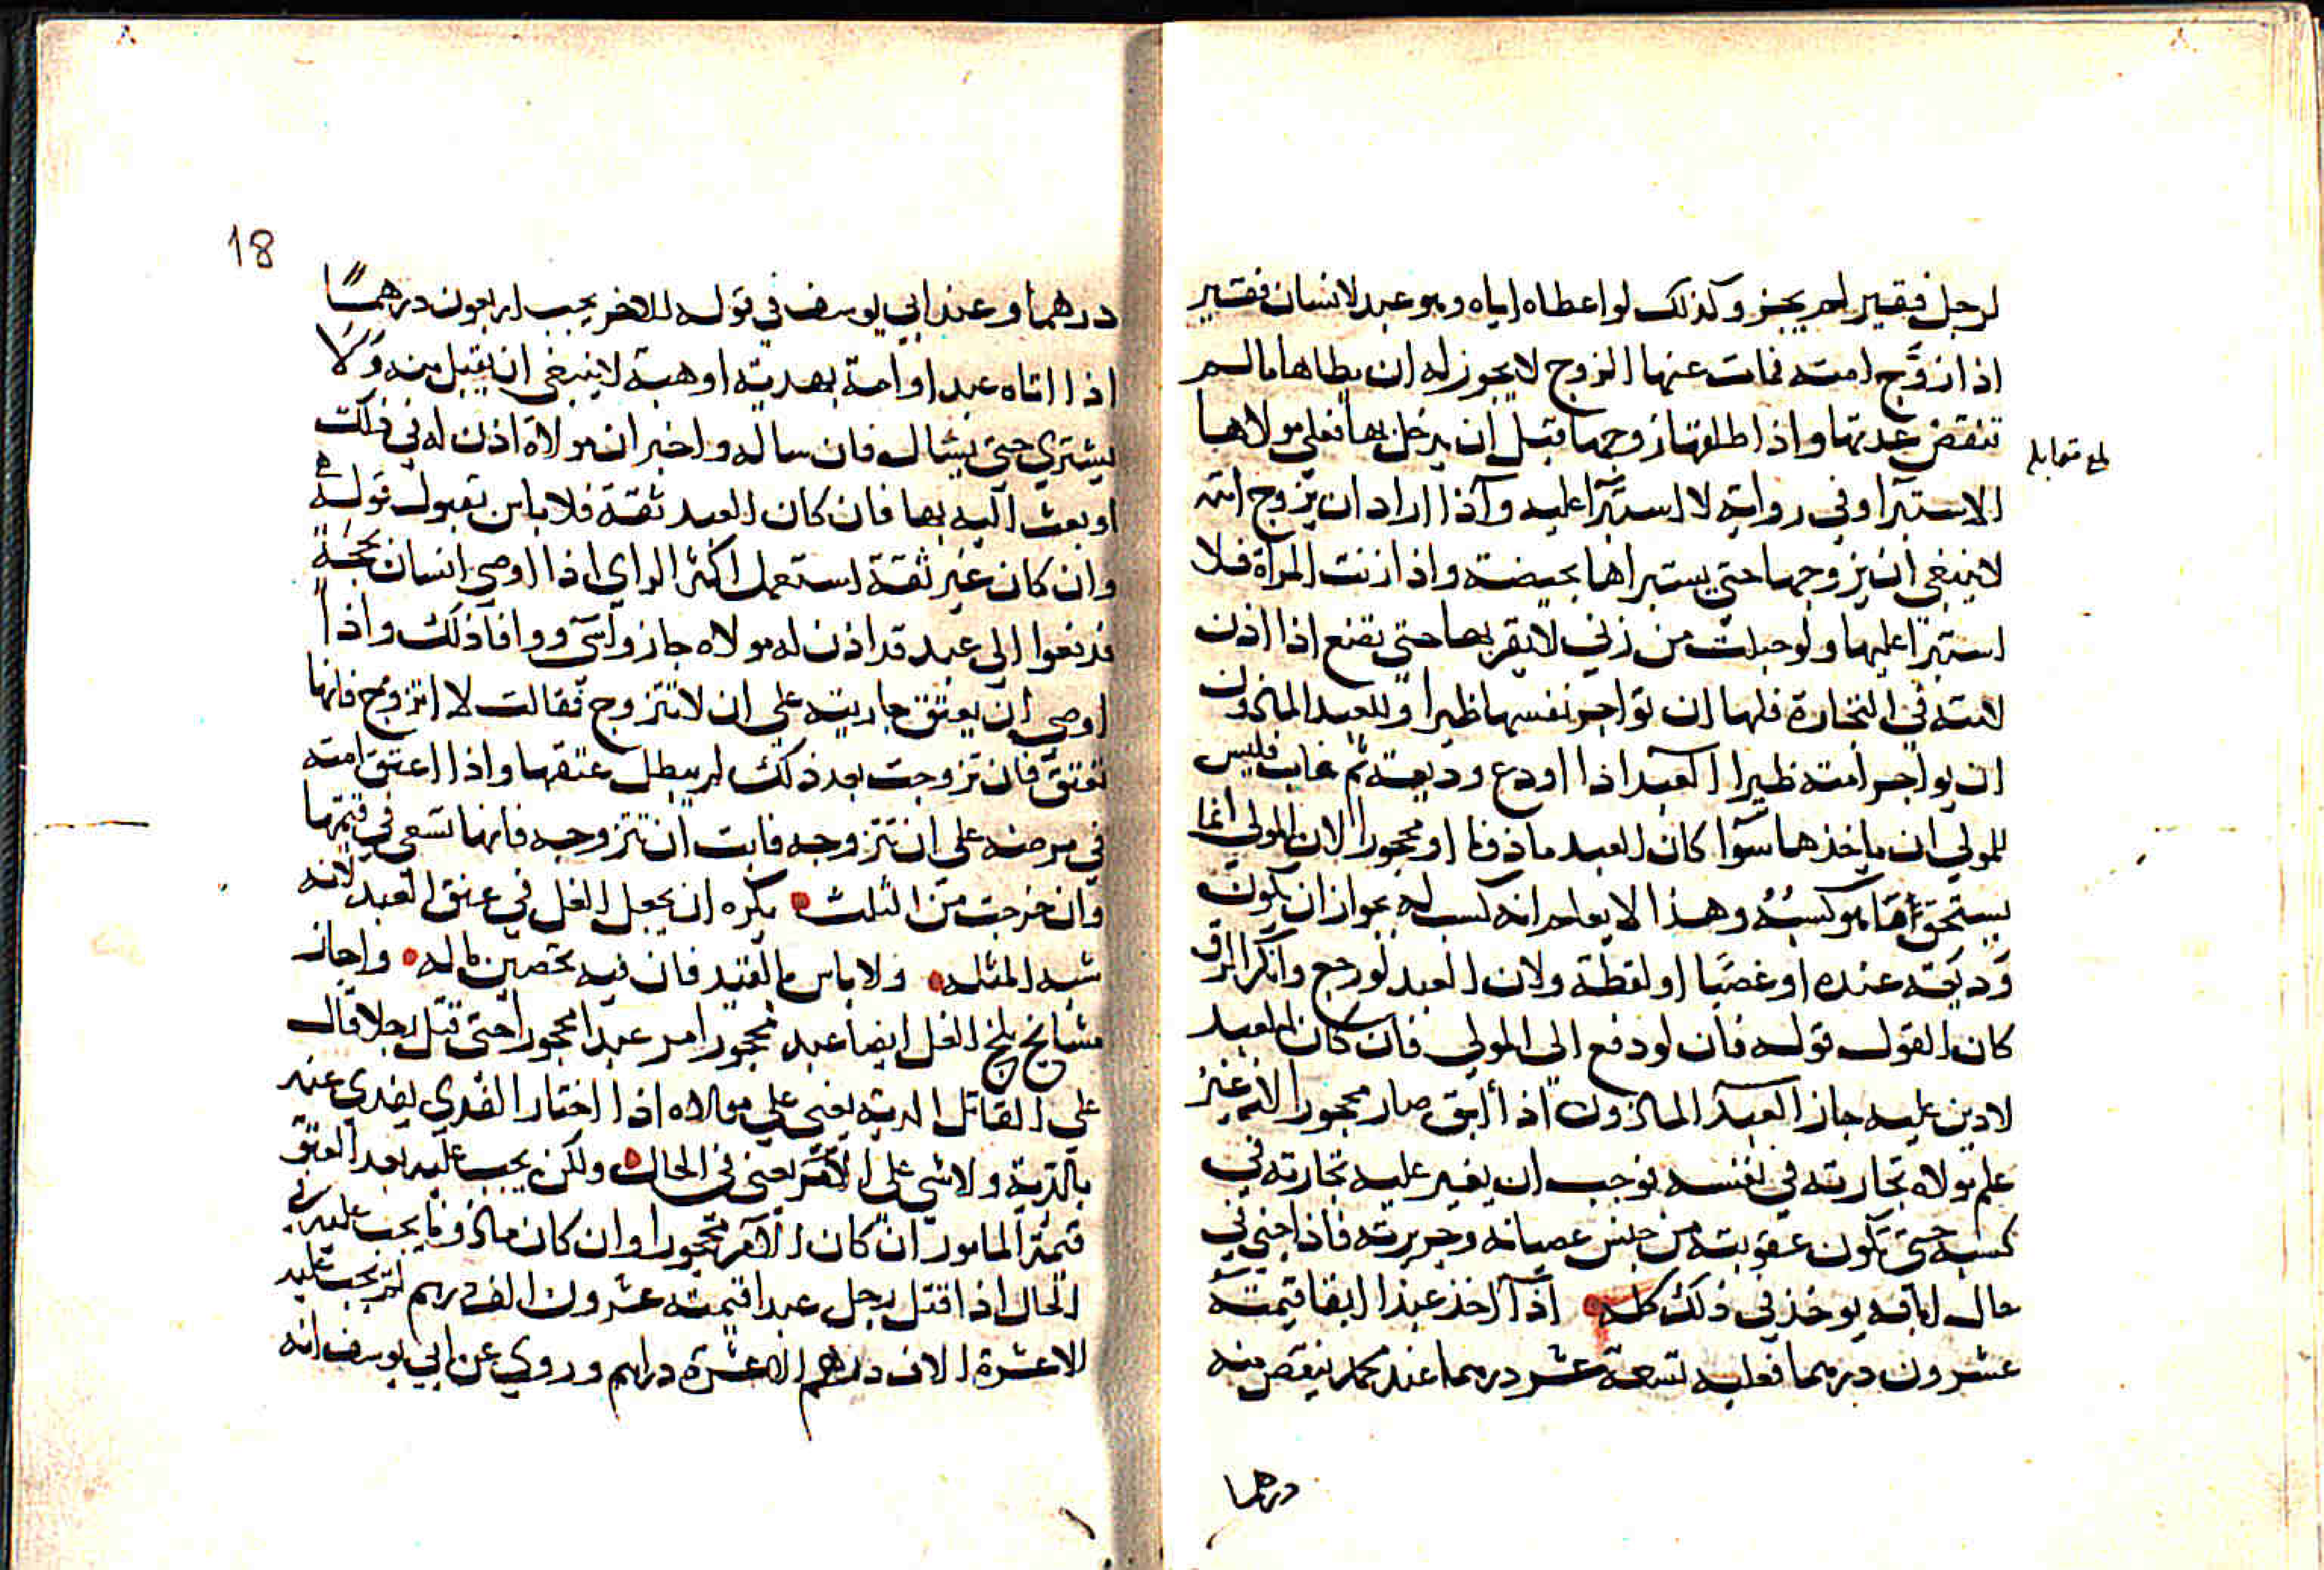 لرجل فقير لم يجز وكذلك لو اعطاه اياه وهو عبد لانسان فقير
اذا زوَّج امته فمات عنها الزوج لا يجوز له ان يطاها ما لم
تنقض عدتها واذا طلقها زوجها قبل ان يدخل بها فعلي مولاها
الاستبرا وفي رواية لا استبرا عليه واذا اراد ان يزوج امته
لا ينبغي ان يزوجها حتي يستبراها بحيضة واذا زنت المراة فلا
استبرا عليها ولو حبلت من زني لا يقربها حتي تضع اذا اذن
لامته في التجارة فلها ان تواجر نفسها ظيرا وللعبد الماذون
ان يواجر امته ظيرا العبد اذا اودع وديعة ثم غاب فليس
للمولي ان ياخذها سوآ كان العبد ماذونا او محجورا لان المولي انما
يستحق اخذ ما هو كسبُهُ وهذا لا يعلم انه كسب له بجواز ان يكون
وديعة عنده او غصبًا او لقطة ولان العبد لو رجع وانكر الرق
كان القول قوله فان لو دفع الى المولي فان كان العبد
لا دين عليه جاز العبد الماذون اذا ابق صار محجورا لانه غير
علم مولاه تجارته في نفسه فوجب ان يغير عليه تجارته في
كسبه حتى تكون عقوبته من جنس عصيانه وجريرته فاذا جني في
حال اباقه يوخذ في ذلك كله اذا اخذ عبدا ابقا قيمته
عشرون درهما فعليه تسعة عشر درهما عند محمد ينقص منه
درهما
18
درهما وعند ابي يوسف في قوله الاخر يجب اربعون درهمًا
اذا اتاه عبد او امة بهدية او هبة لا ينبغي ان يقبل منه ولا
يشتري حتى يسال فان ساله واخبر ان مولاه اذن له في ذلك
او بعث اليه بها فان كان العبد ثقة فلا باس بقبول قوله
وان كان غير ثقة استعمل اكثر الراي اذا اوصي انسان بحجة
فدفعوا الي عبد قد اذن له مولاه جاز واسي ووافا ذلك واذا
اوصي ان يعتق جاريته علي ان لا تتزوج فقالت لا اتزوج فانها
تعتق فان تزوجت بعد ذلك لم يبطل عتقها واذا اعتق امته
في مرضه على ان تتزوجه فابت ان تتزوجه فانها تسعي في قيمتها
وان خرجت من الثلث يكره ان يجعل الغل في عنق العبد لانه
شبه المثله ولا باس بالقيد فان فيه تحصين ماله واجاز
مشايخ بلخ الغل ايضا عبد محجور امر عبدا محجورا حتى قتل رجلا قال
علي القاتل الدية يعني علي مولاه اذا اختار الفدي يفدي عنه
بالدية ولا شي على الآمر يعني في الحال ولكن يجب عليه بعد العتق
قيمة المامور ان كان الآمر محجورا وان كان ماذونا يجب عليه في
الحال اذا قتل رجل عبدا قيمته عشرون الف درهم لم يجب عليه
الا عشرة الاف درهم الا عشرة دراهم وروي عن ابي يوسف انه